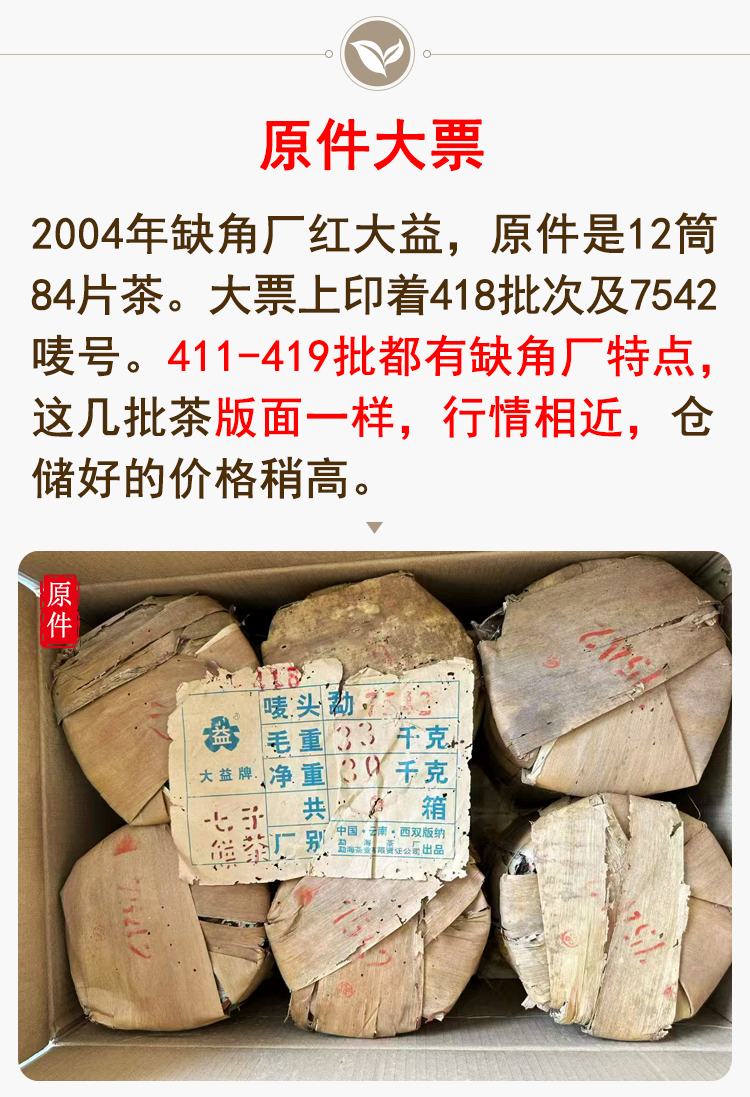 原件大票
2004年缺角厂红大益，原件是12筒
84片茶。大票上印着418批次及7542
唛号。411-419批都有缺角厂特点，
这几批茶版面一样，行情相近，仓
储好的价格稍高。
原件
418
唛头 勐 7542
益
毛重 33 千克
大益牌
净重 30 千克
共 箱
七子
饼茶
厂别
中国·云南·西双版纳
勐海茶厂
勐海茶业有限责任公司 出品
7542
7542
7542
7542